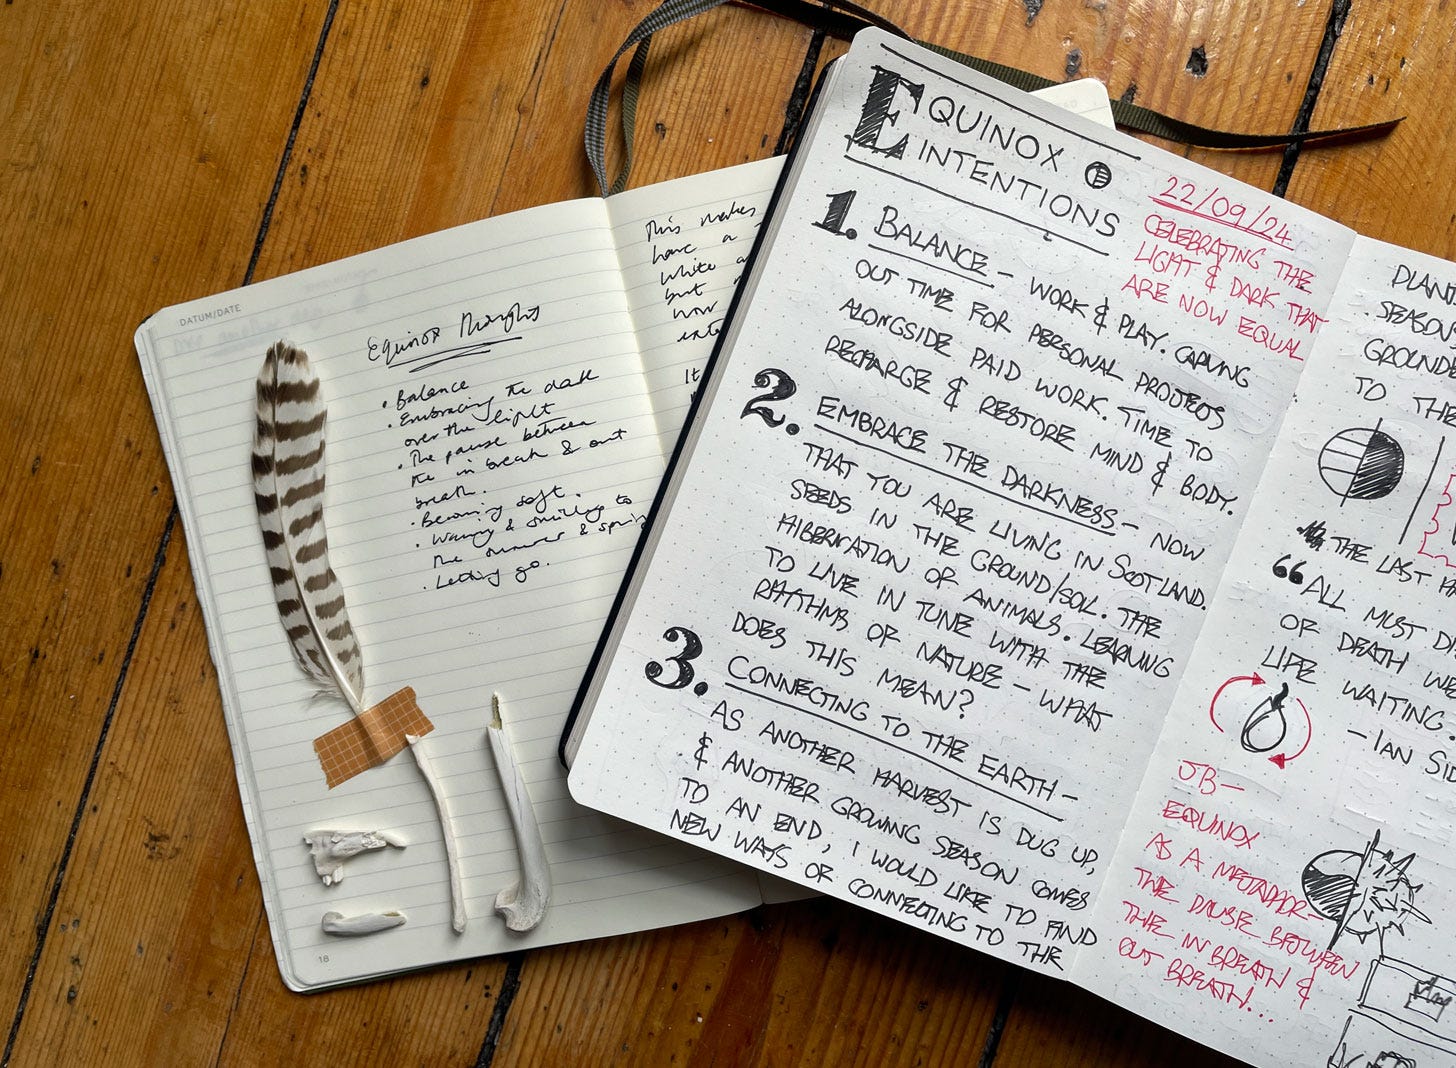 DATUM/DATE
Equinox Thoughts
• Balance
• Embracing the dark
over the light
• The pause between
the in breath & out
breath.
• Becoming soft.
• Waving & smiling to
the summer & spring
• Letting go.
18
This makes
have a
white
but
now
It
EQUINOX
INTENTIONS
22/09/24
CELEBRATING THE
LIGHT & DARK THAT
ARE NOW EQUAL
1. BALANCE – WORK & PLAY. CARVING
OUT TIME FOR PERSONAL PROJECTS
ALONGSIDE PAID WORK. TIME TO
RECHARGE & RESTORE MIND & BODY.
2. EMBRACE THE DARKNESS – NOW
THAT YOU ARE LIVING IN SCOTLAND.
SEEDS IN THE GROUND/SOIL. THE
HIBERNATION OF ANIMALS. LEARNING
TO LIVE IN TUNE WITH THE
RHYTHMS OF NATURE – WHAT
DOES THIS MEAN?
3. CONNECTING TO THE EARTH –
AS ANOTHER HARVEST IS DUG UP,
& ANOTHER GROWING SEASON COMES
TO AN END, I WOULD LIKE TO FIND
NEW WAYS OF CONNECTING TO THE
PLANT
SEASON
GROUNDE
TO THE
THE LAST
“ALL MUST DI
OF DEATH WE
LIFE WAITING.
– IAN SID
JB –
EQUINOX
AS A METAPHOR –
THE PAUSE BETWEEN
THE IN BREATH &
OUT BREATH...